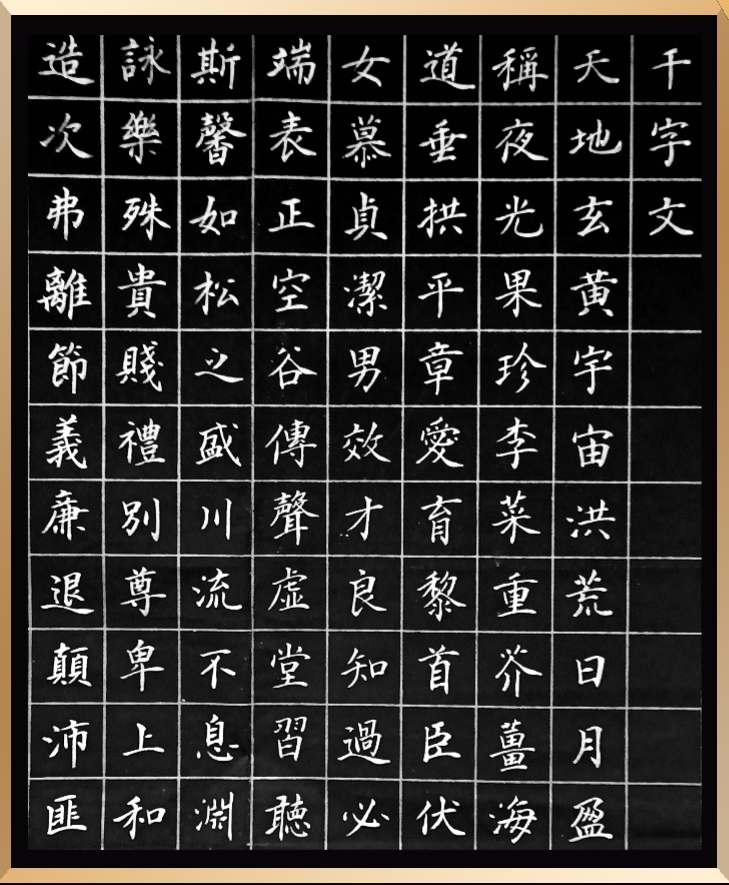 千字文
天地玄黃宇宙洪荒日月盈
稱夜光果珍李菜重芥薑海
道垂拱平章愛育黎首臣伏
女慕貞潔男效才良知過必
端表正空谷傳聲虛堂習聽
斯馨如松之盛川流不息淵
詠樂殊貴賤禮別尊卑上和
造次弗離節義廉退顛沛匪